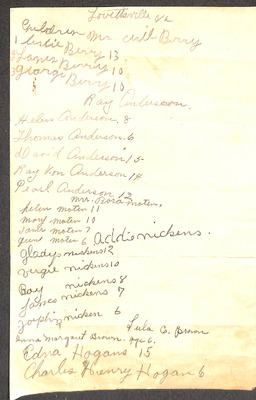 Lovettsville Va
Children Mr Will Berry
Leslie Berry 13
James Berry 10
George Berry 10
Ray Anderson
Helen Anderson 8
Thomas Anderson 6
David Anderson 15
Ray Von Anderson 14
Pearl Anderson 12
Mrs. Rosa Moten.
helen moten 11
mary moten 10
James moten 7
moten 6 Addie nickens.
gladys nickens 12
vergie nickens 10
Roy nickens 8
James nickens 7
nicken 6
Lula B. Brown
Anna Margaret Brown. age 6.
Edna Hogans 15
Charles Henry Hogan 6